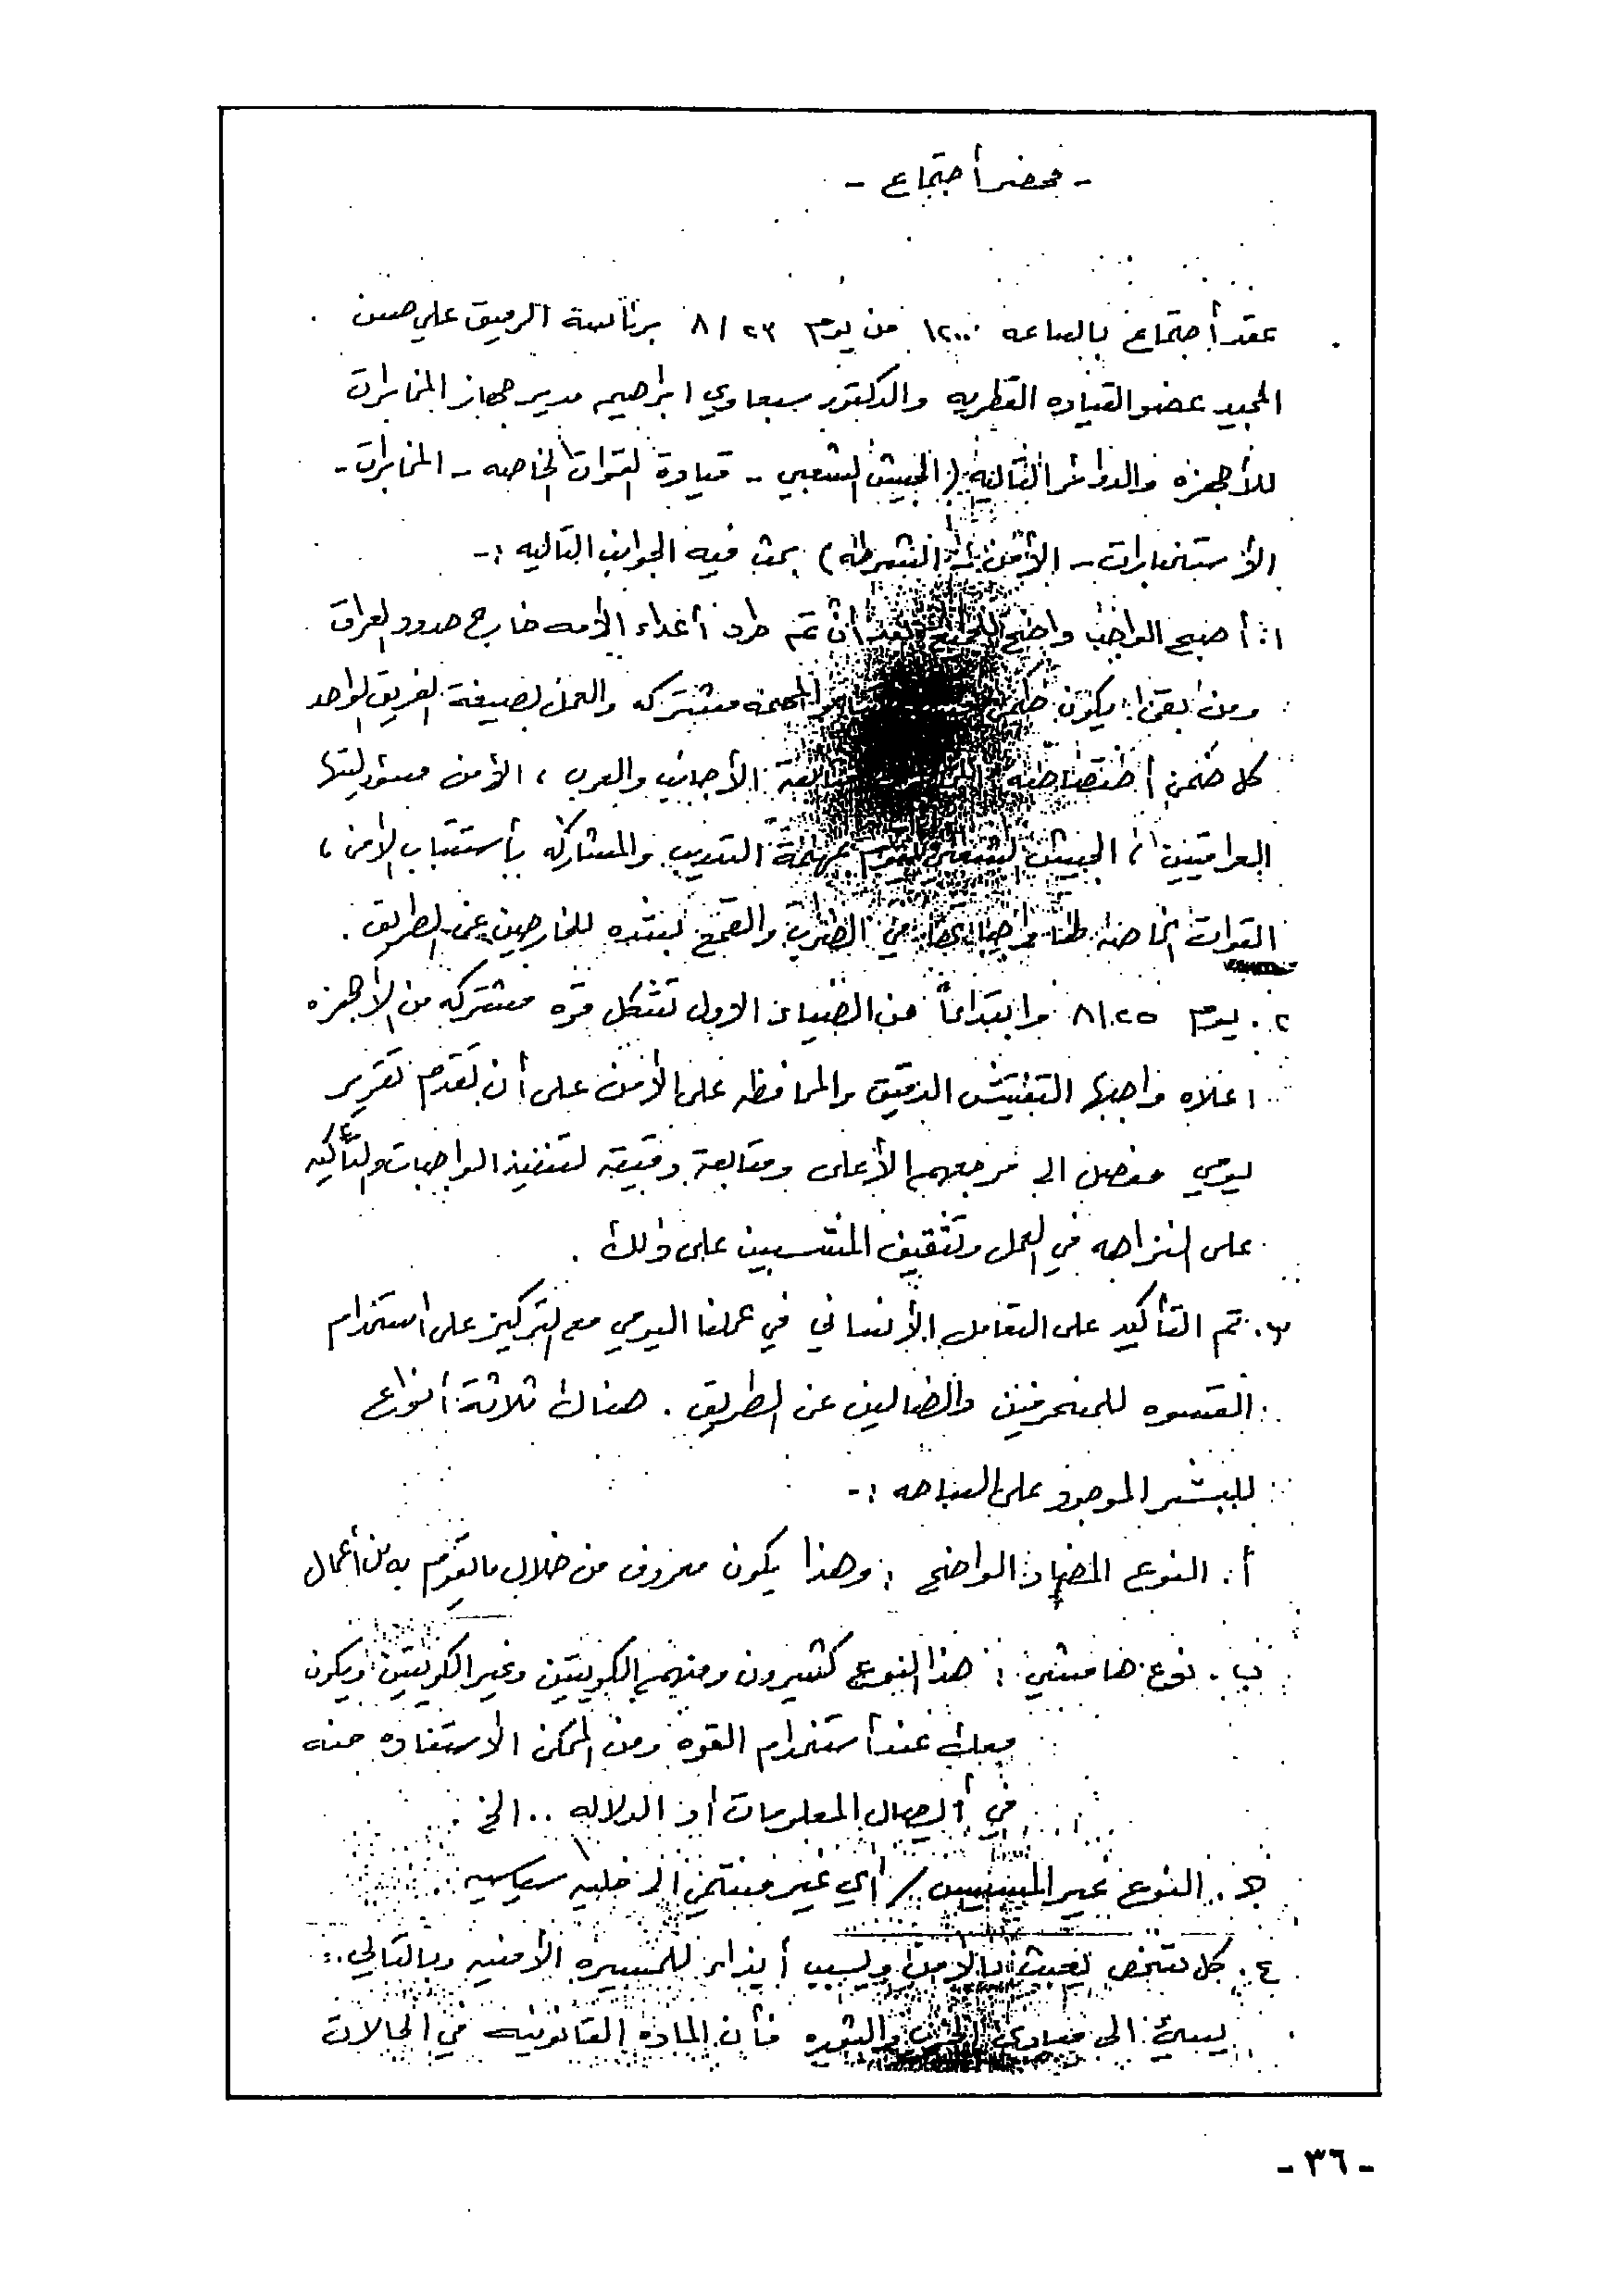 - محضر أجتماع -
عقد أجتماع بالساعه ١٢٠٠ من يوم ٢٣ / ٨ برئاسة الرفيق علي حسن
المجيد عضو القياده القطريه والدكتور سبعاوي ابراهيم مدير جهاز المخابرات
للأجهزه والدوائر التاليه (الجيش الشعبي - قيادة القوات الخاصه - المخابرات -
الأستخبارات - الأمن - الشرطه) بحث فيه الجوانب التاليه :-
١. أصبح الواجب واضح للجميع بعد أن تم طرد أعداء الأمه خارج حدود العراق
ومن بقى يكون ضمن والمهمه مشتركه والعمل بصيغة الفريق الواحد
كل ضمن أختصاصه متابعة الأجانب والعرب ، الأمن مسؤوليتها
العراقيين ، الجيش الشعبي يقوم بمهمة التدريب والمشاركه بأستتباب الأمن ،
القوات الخاصه لها واجباتها من الضرب والقمع بشده للخارجين عن الطريق .
٢. يوم ٨/٢٥ وابتداءاً من الضياء الاول تشكل قوه مشتركه من الأجهزه
اعلاه واجبها التفتيش الدقيق والمحافظه على الأمن على أن يقدم تقرير
يومي مفصل الى مرجعهم الأعلى ومتابعة دقيقة لتنفيذ الواجبات والتأكيد
على النزاهه في العمل وتثقيف المنتسبين على ذلك .
٣. تم التأكيد على التعامل الأنساني في عملنا اليومي مع التركيز على استخدام
القسوه للمنحرفين والضالين عن الطريق . هناك ثلاثة أنواع
للبشر الموجود على الساحه :-
أ. النوع المضاد الواضح : وهذا يكون معروف من خلال مايقوم به من أعمال
ب. نوع هامشي : هذا النوع كثيرون ومنهم الكويتيين وغير الكويتيين ويكون
معك عند أستخدام القوه ومن الممكن الأستفاده منه
في أيصال المعلومات أو الدلاله .. الخ
جـ. النوع غير المسيس / أي غير منتمي الى خليه سياسيه
٤. كل شخص يعبث بالأمن ويسبب أيذاء للمسيره الأمنيه وبالتالي
يسيئ الى مبادئ الحزب والثوره فأن الماده القانونيه في الحالات
- ٣٦ -